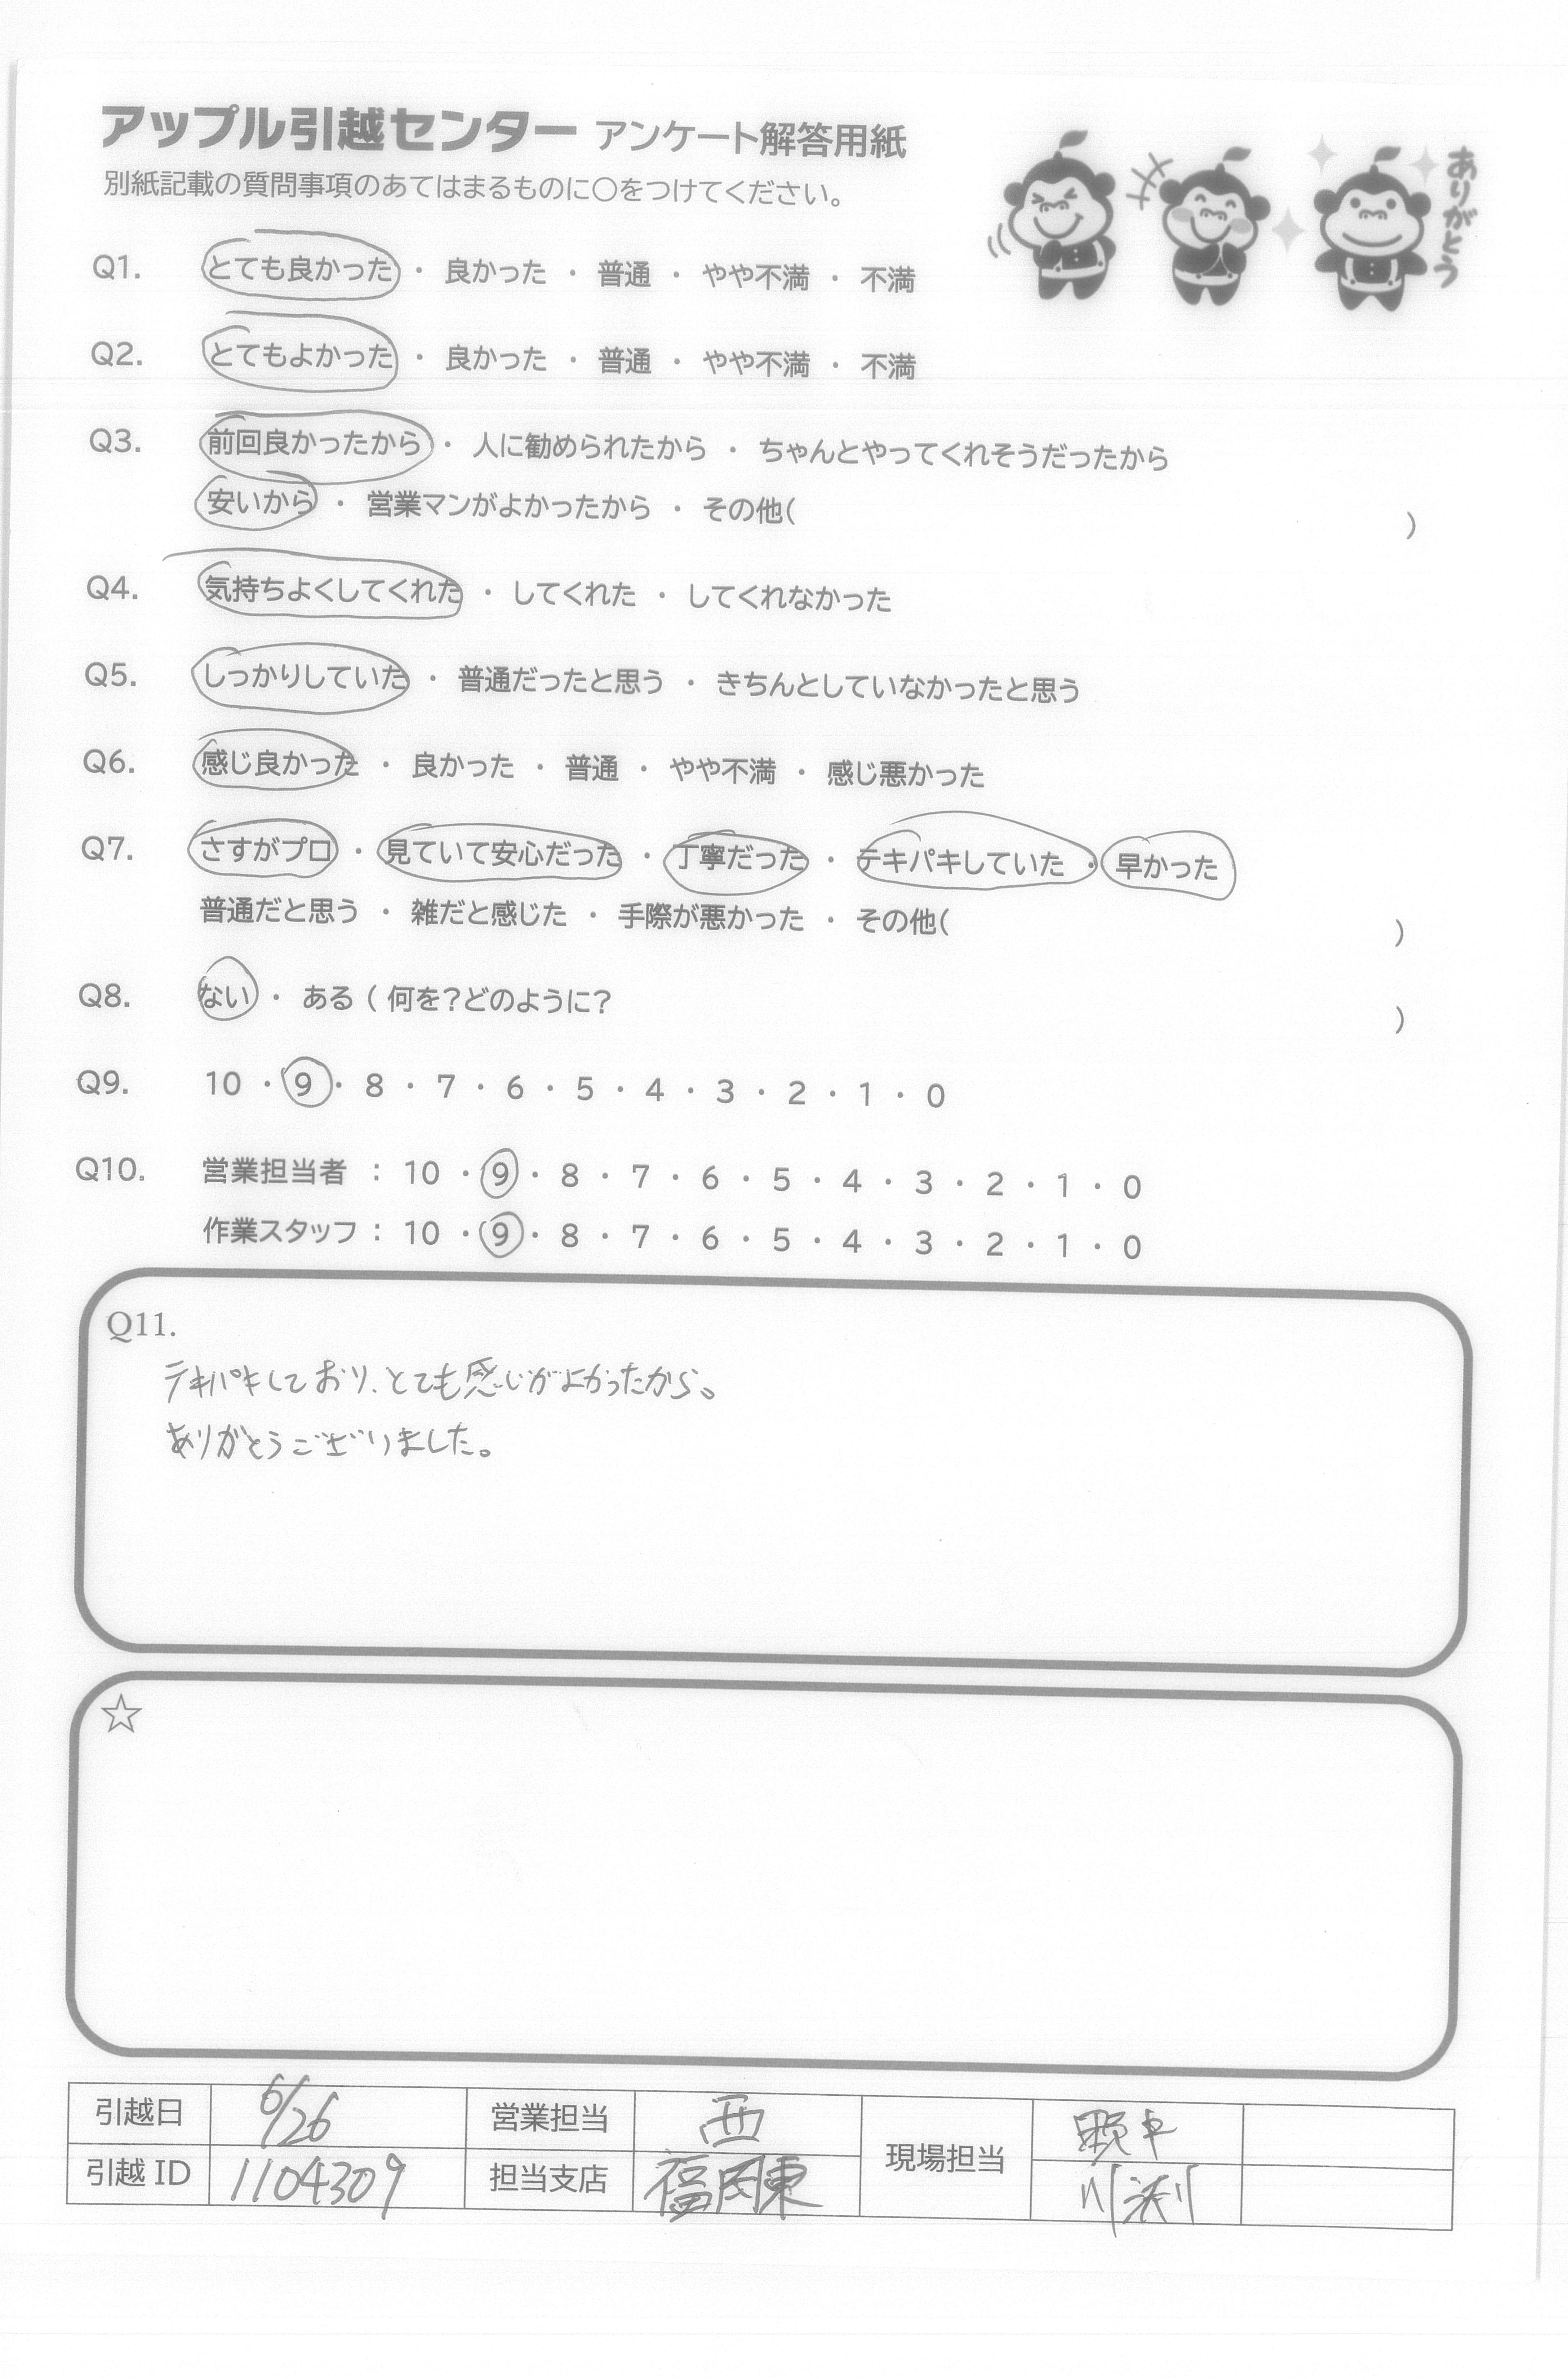 アップル引越センター アンケート解答用紙
別紙記載の質問事項のあてはまるものに○をつけてください。
ありがとう
Q1. とても良かった ・ 良かった ・ 普通 ・ やや不満 ・ 不満
Q2. とてもよかった ・ 良かった ・ 普通 ・ やや不満 ・ 不満
Q3. 前回良かったから ・ 人に勧められたから ・ ちゃんとやってくれそうだったから
安いから ・ 営業マンがよかったから ・ その他( )
Q4. 気持ちよくしてくれた ・ してくれた ・ してくれなかった
Q5. しっかりしていた ・ 普通だったと思う ・ きちんとしていなかったと思う
Q6. 感じ良かった ・ 良かった ・ 普通 ・ やや不満 ・ 感じ悪かった
Q7. さすがプロ ・ 見ていて安心だった ・ 丁寧だった ・ テキパキしていた ・ 早かった
普通だと思う ・ 雑だと感じた ・ 手際が悪かった ・ その他( )
Q8. ない ・ ある ( 何を?どのように? )
Q9. 10 ・ 9 ・ 8 ・ 7 ・ 6 ・ 5 ・ 4 ・ 3 ・ 2 ・ 1 ・ 0
Q10. 営業担当者 : 10 ・ 9 ・ 8 ・ 7 ・ 6 ・ 5 ・ 4 ・ 3 ・ 2 ・ 1 ・ 0
作業スタッフ : 10 ・ 9 ・ 8 ・ 7 ・ 6 ・ 5 ・ 4 ・ 3 ・ 2 ・ 1 ・ 0
Q11.
テキパキしており、とても感じがよかったから。
ありがとうございました。
☆
引越日 6/26 営業担当 西 現場担当
引越 ID 1104309 担当支店 福岡東 川渕